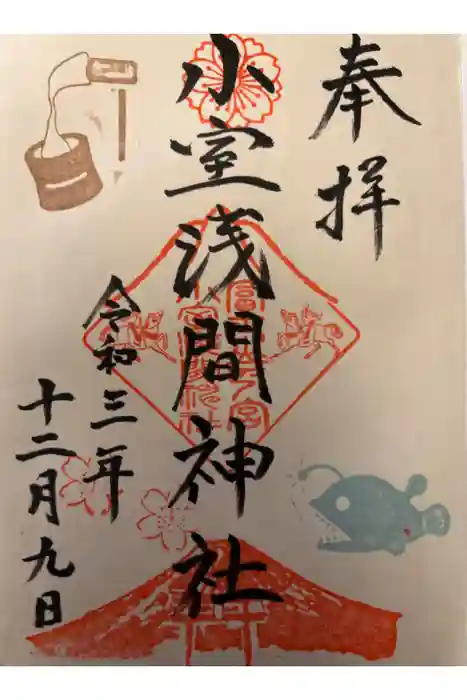 奉拝
小室浅間神社
令和三年
十二月九日